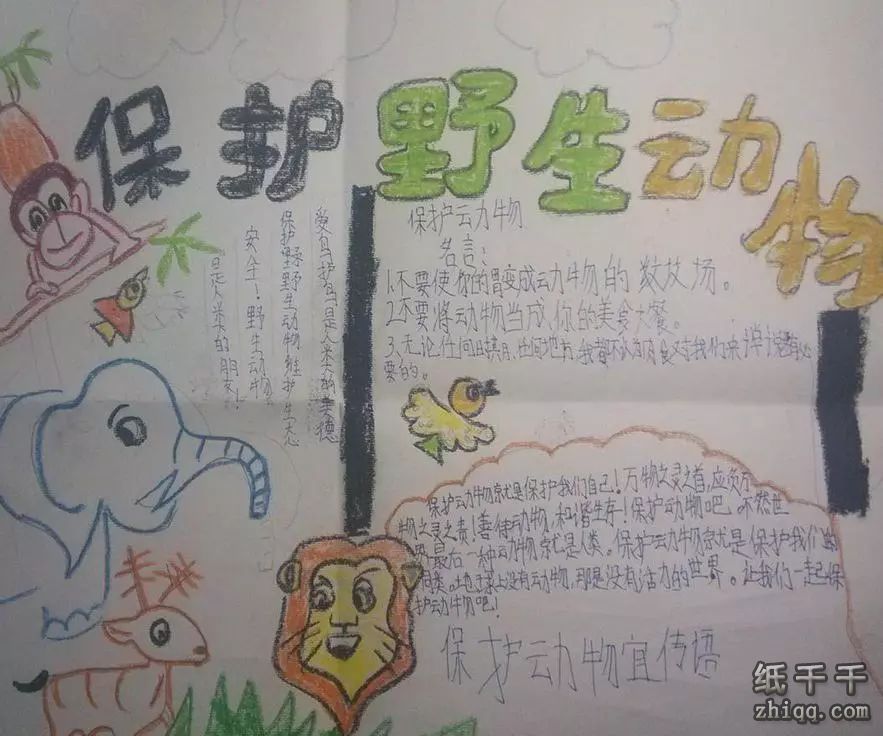 保护野生动物
爱鸟护鸟是人类的美德
保护野野生动物维护生态
安全！野生动物
是人类的朋友！
保护动物
名言：
1.不要使你的胃变成动物的坟场。
2.不要将动物当成你的美食大餐。
3、无论任何日期,任何地方,我都不认为肉食对于我们来说是有必
要的。
保护动物就是保护我们自己！万物之灵之首,应负万
物之灵之责！善使动物,和谐生存！保护动物吧,不然世
界最后一种动物就是人类。保护动物就是保护我们的
同类。地球上没有动物,那是没有活力的世界。让我们一起保
护动物吧！
保护动物宣传语
纸千千
zhiqq.com